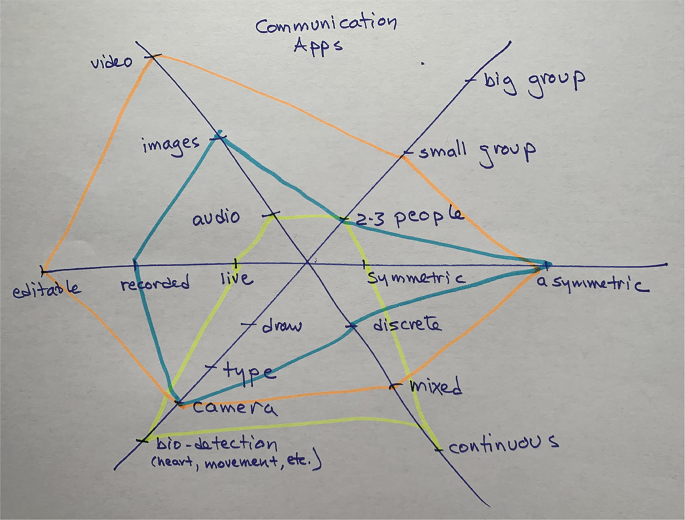 Communication
Apps
video
big group
images
small group
audio
2-3 people
editable
recorded
live
symmetric
asymmetric
draw
discrete
type
mixed
camera
bio-detection
(heart, movement, etc.)
continuous